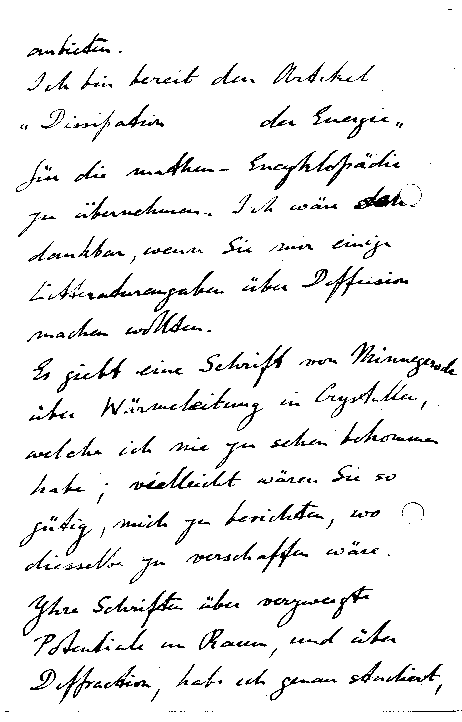 anbieten.
Ich bin bereit den Artikel
„Dissipation der Energie„
für die mathem- Encyklopädie
zu übernehmen. Ich wäre
dankbar, wenn Sie mir einige
Litteraturangaben über Diffusion
machen wollten.
Es giebt eine Schrift von Minnegerode
über Wärmeleitung in Crystallen,
welche ich nie zu sehen bekommen
habe; vielleicht wären Sie so
gütig, mich zu berichten, wo
diesselbe zu verschaffen wäre.
Yhre Schriften über verzweigte
Potentiale im Raum, und über
Diffraction, habe ich genau studiert,